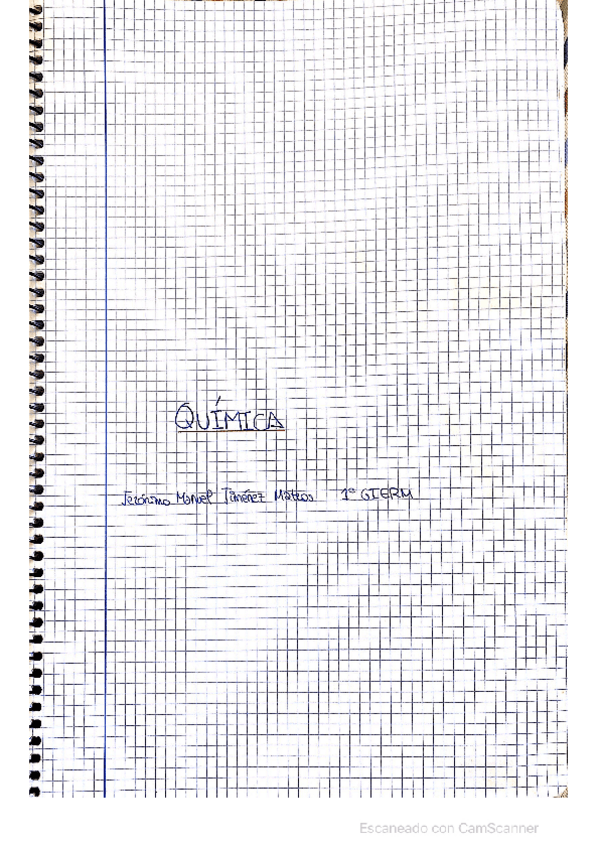 QUÍMICA
Jerónimo Manuel Jiménez Mateos 1º GIERM
Escaneado con CamScanner